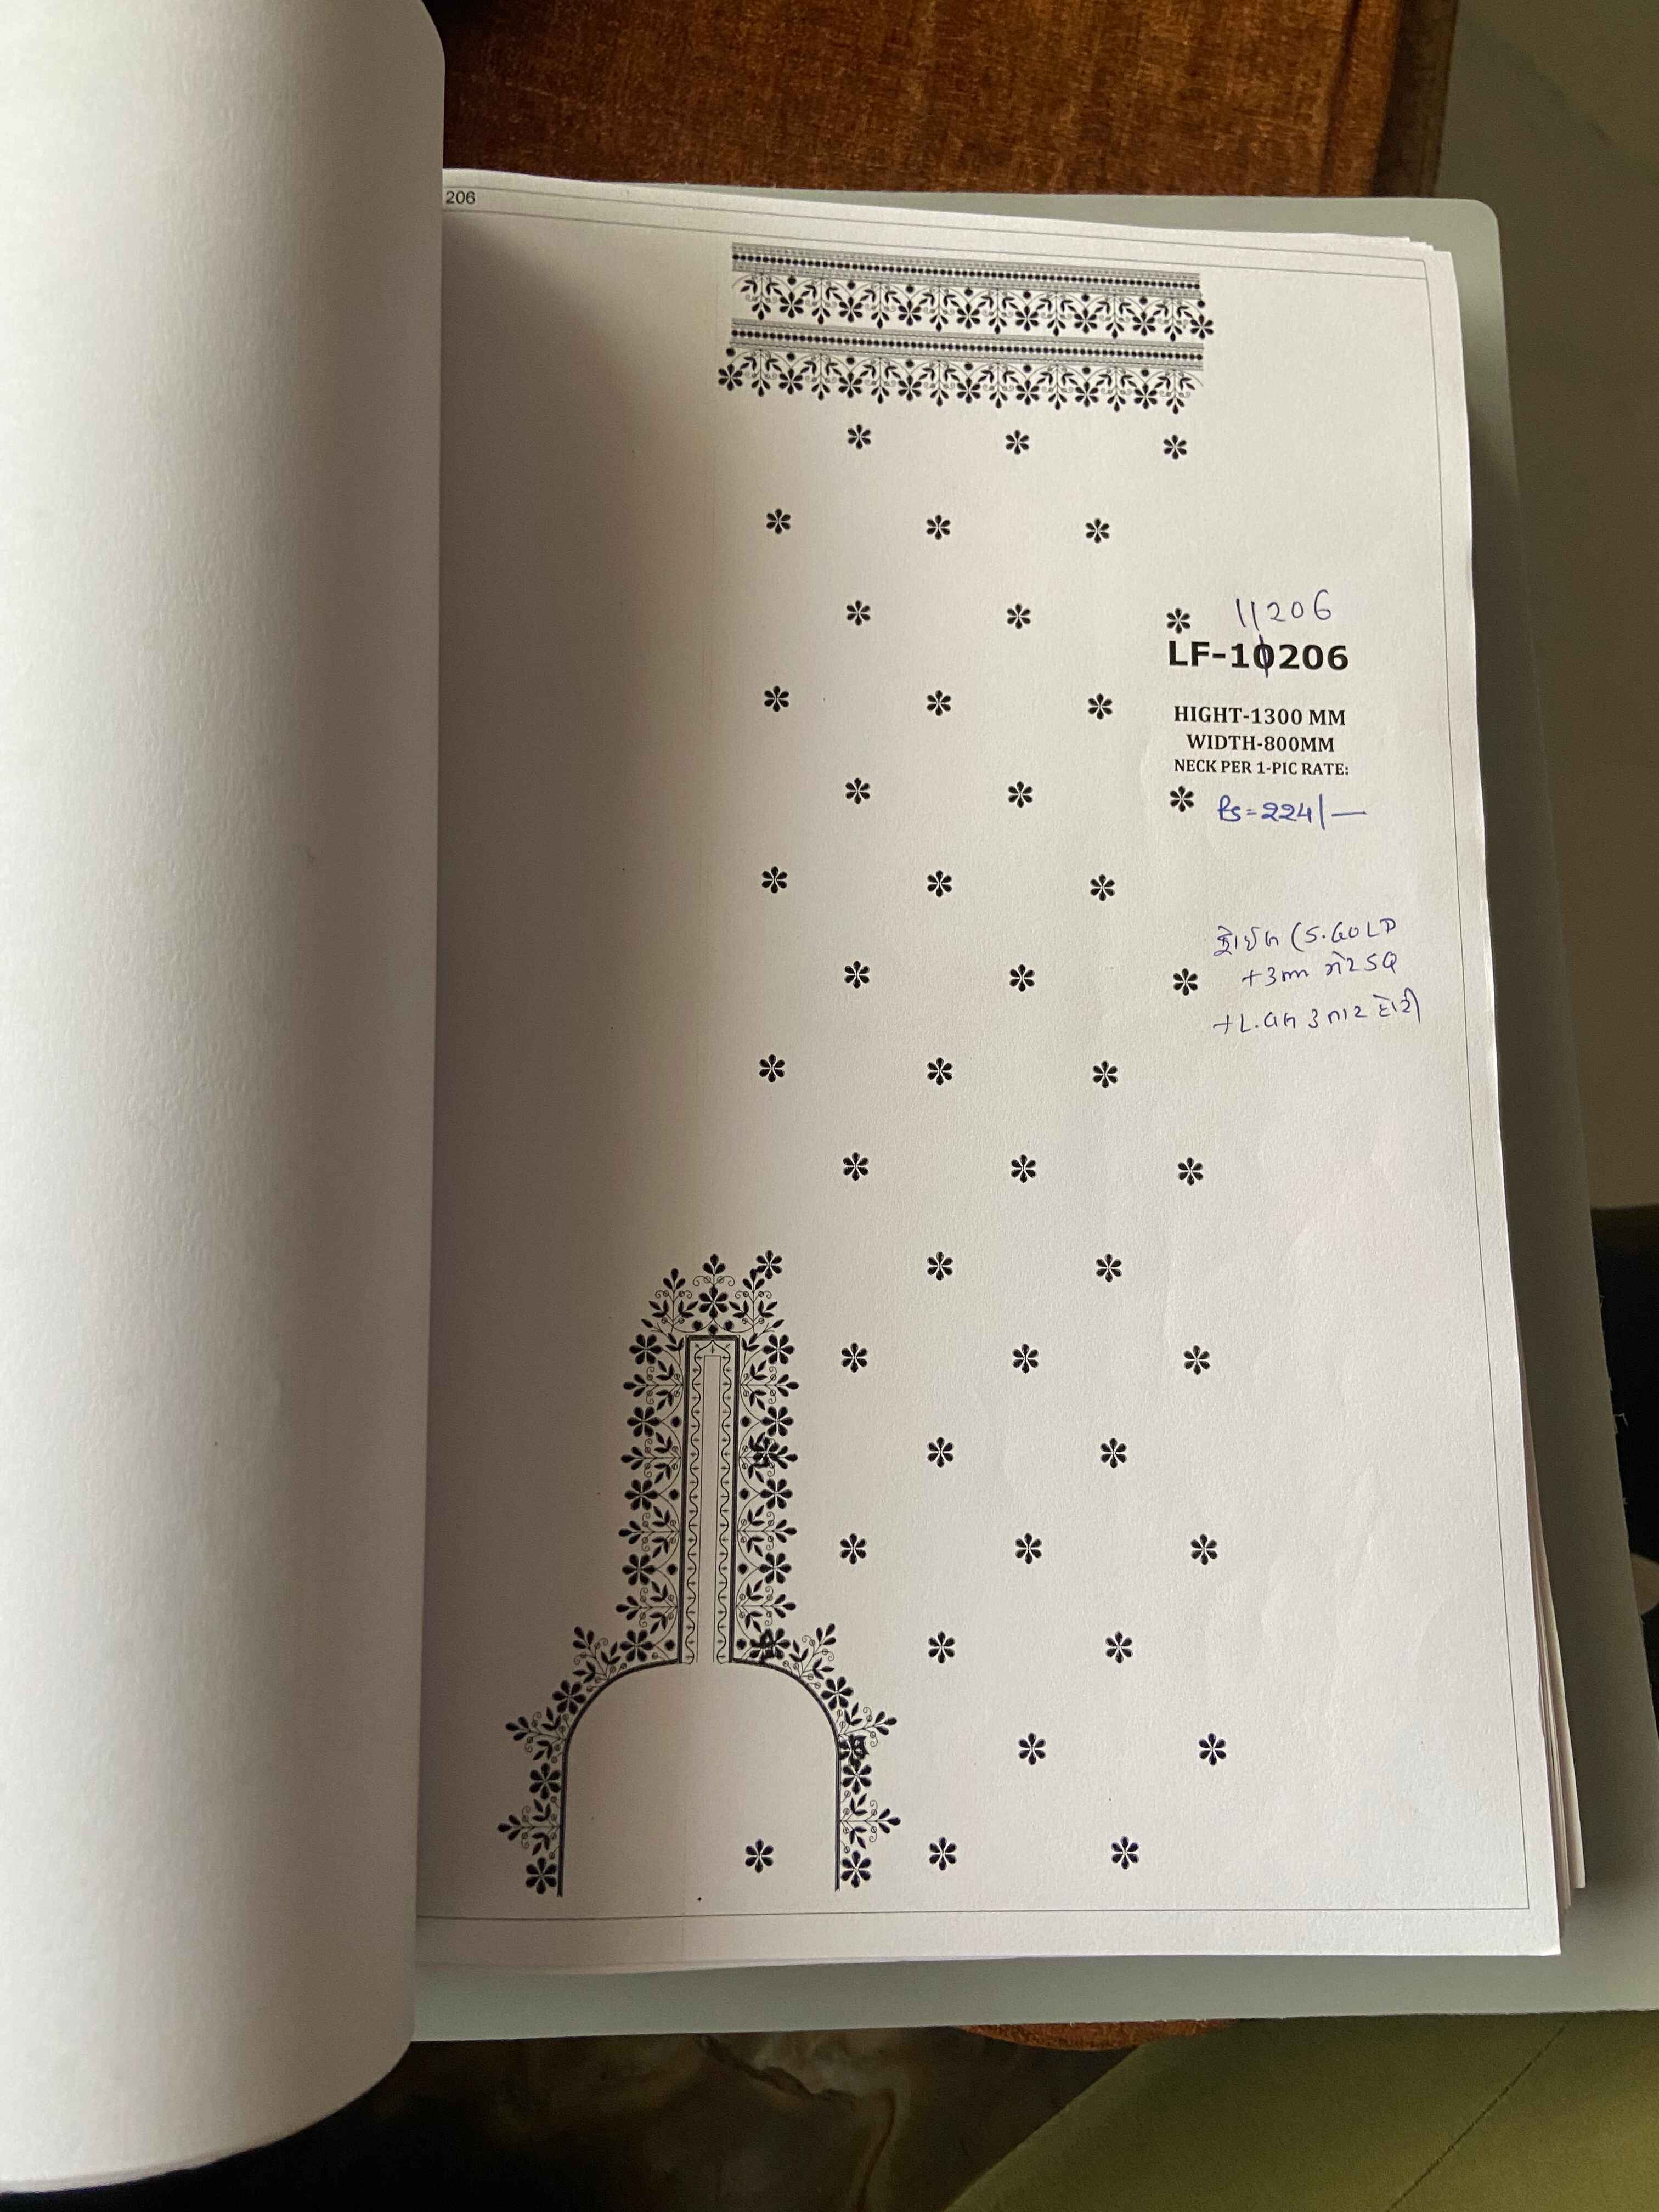 206
11206
LF-10206
HIGHT-1300 MM
WIDTH-800MM
NECK PER 1-PIC RATE:
Rs=224/—
(S.GOLD
+3mm સેર SQ
+L. 3 તાર દોરી